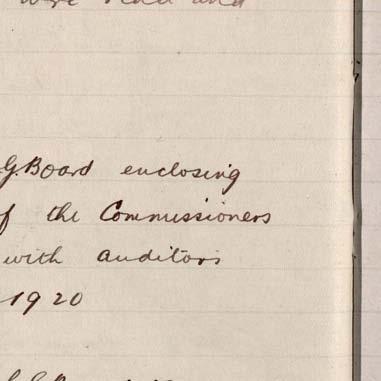 were read and
G. Board enclosing
of the Commissioners
with auditors
1920